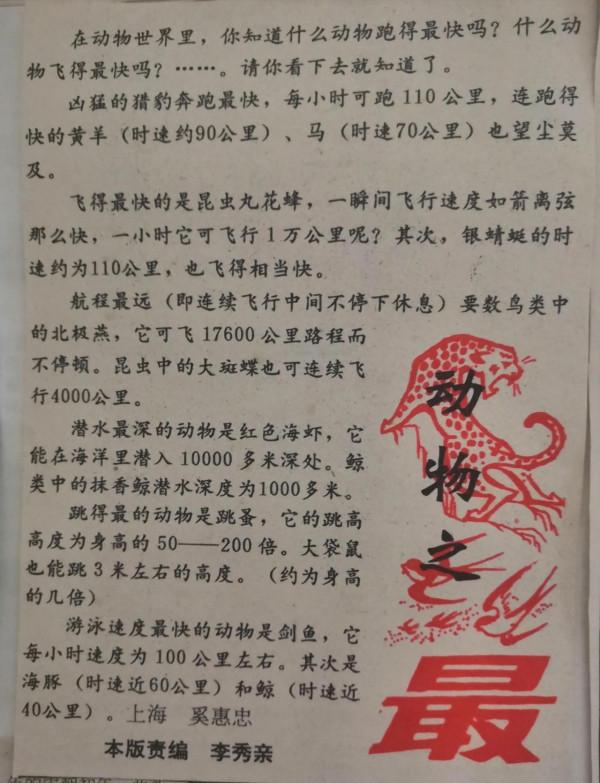 在动物世界里，你知道什么动物跑得最快吗？什么动
物飞得最快吗？……。请你看下去就知道了。
凶猛的猎豹奔跑最快，每小时可跑 110 公里，连跑得
快的黄羊（时速约90公里）、马（时速70公里）也望尘莫
及。
飞得最快的是昆虫丸花蜂，一瞬间飞行速度如箭离弦
那么快，一小时它可飞行 1 万公里呢？其次，银蜻蜓的时
速约为110公里，也飞得相当快。
航程最远（即连续飞行中间不停下休息）要数鸟类中
的北极燕，它可飞 17600 公里路程而
不停顿。昆虫中的大斑蝶也可连续飞
行4000公里。
潜水最深的动物是红色海虾，它
能在海洋里潜入 10000 多米深处。鲸
类中的抹香鲸潜水深度为1000多米。
跳得最的动物是跳蚤，它的跳高
高度为身高的 50——200 倍。大袋鼠
也能跳 3 米左右的高度。（约为身高
的几倍）
游泳速度最快的动物是剑鱼，它
每小时速度为 100 公里左右。其次是
海豚（时速近60公里）和鲸（时速近
40公里）。上海 奚惠忠
本版责编 李秀亲
动物之最